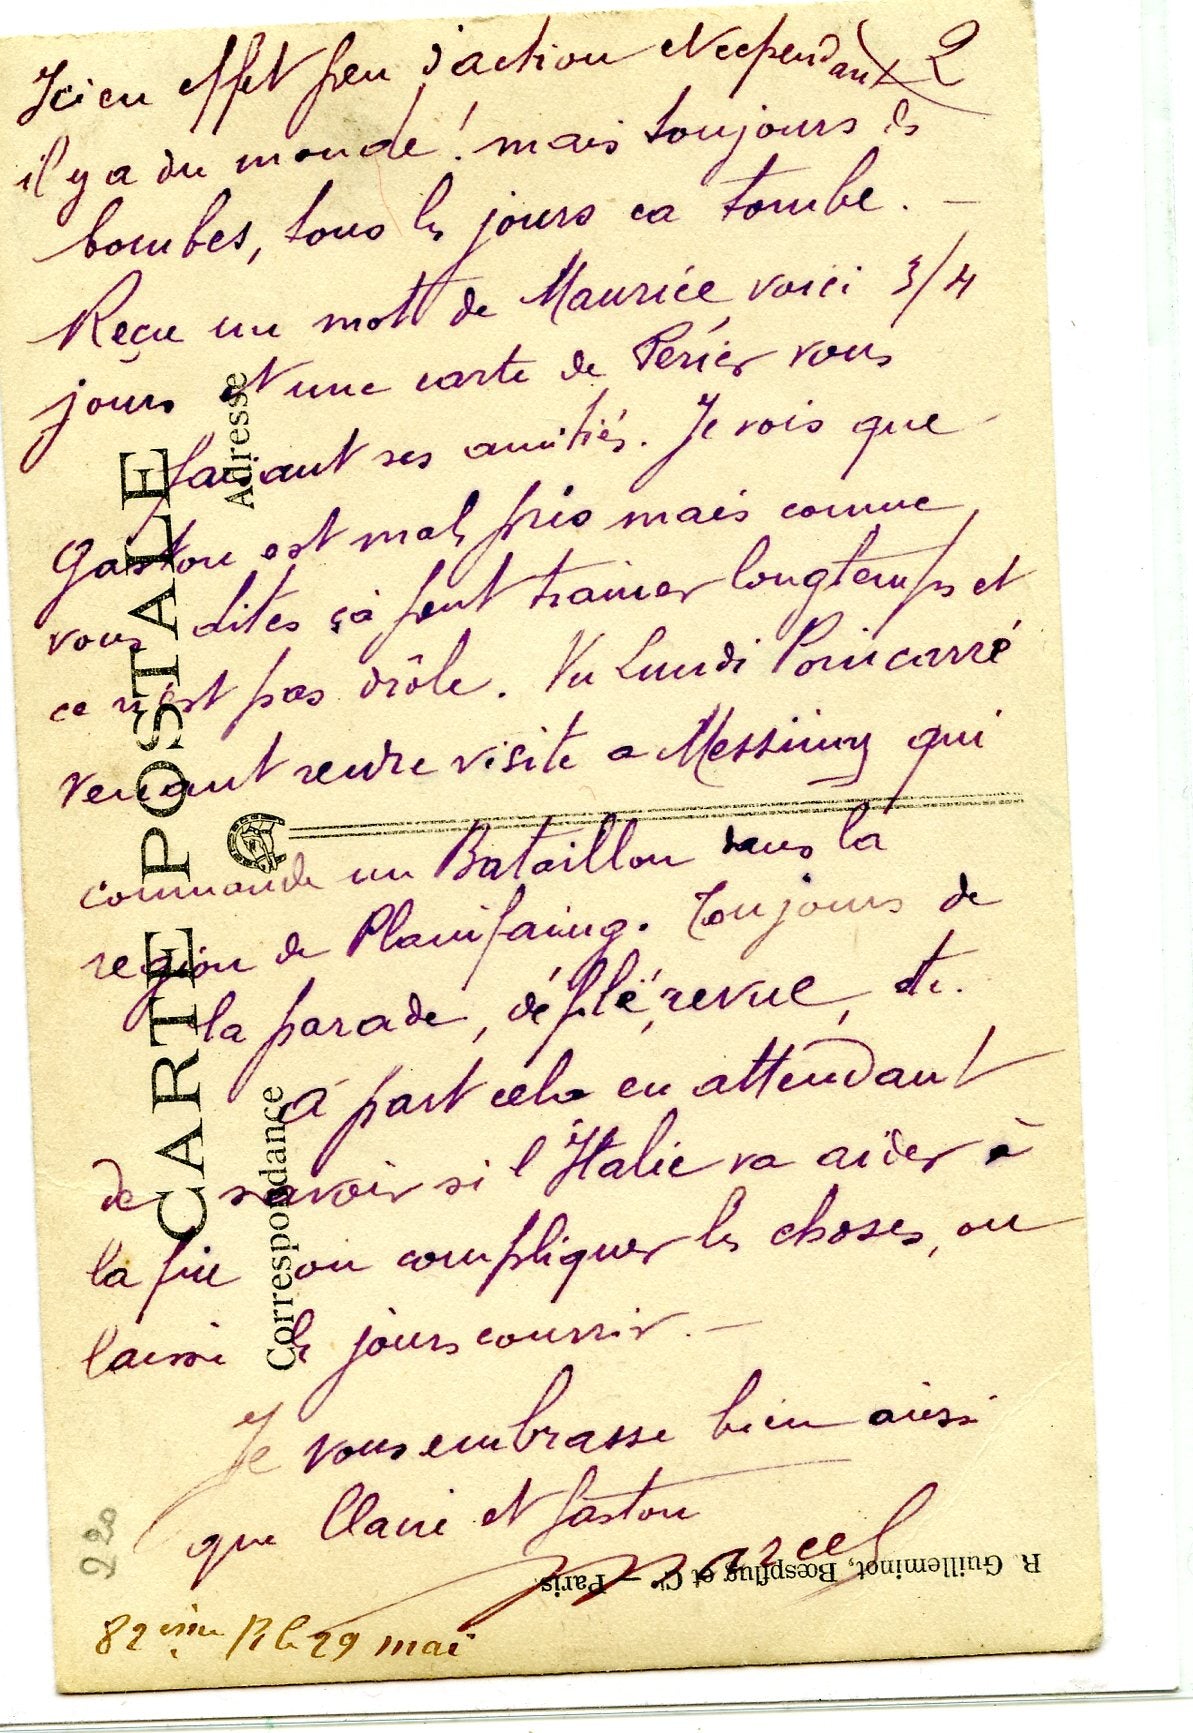 2
Ici en effet peu d'action et cependant
il y a du monde! mais toujours des
bombes, tous les jours ca tombe. —
Reçu un mot de Maurice voici 3/4
jours et une carte de Périer vous
faisant ses amitiés. Je vois que
Gaston est mal pris mais comme
vous dites çà peut trainer longtemps et
ce n'est pas drôle. Vu Lundi Poincarré
venant rendre visite a Messimy qui
commande un Bataillon dans la
region de Plainfaing. Toujours de
la parade, défilé, revue, etc.
à part cela en attendant
de savoir si l'Italie va aider à
la fin ou compliquer les choses, on
laisse les jours courrir. —
Je vous embrasse bien ainsi
que Claire et Gaston
Marcel
82ème R le 29 mai
220
CARTE POSTALE
Correspondance
Adresse
R. Guilleminot, Bœspflug et Cie — Paris